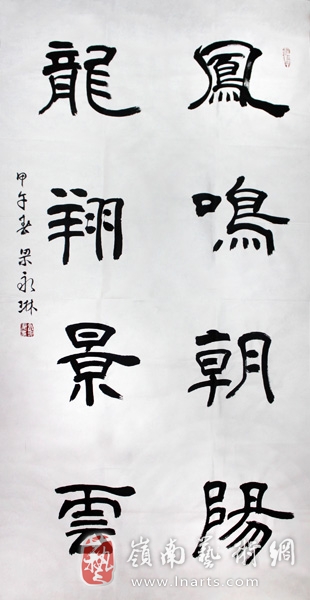 鳳鳴朝陽
龍翔景雲
甲午春 梁永琳
藝 嶺南藝術網
www.lnarts.com